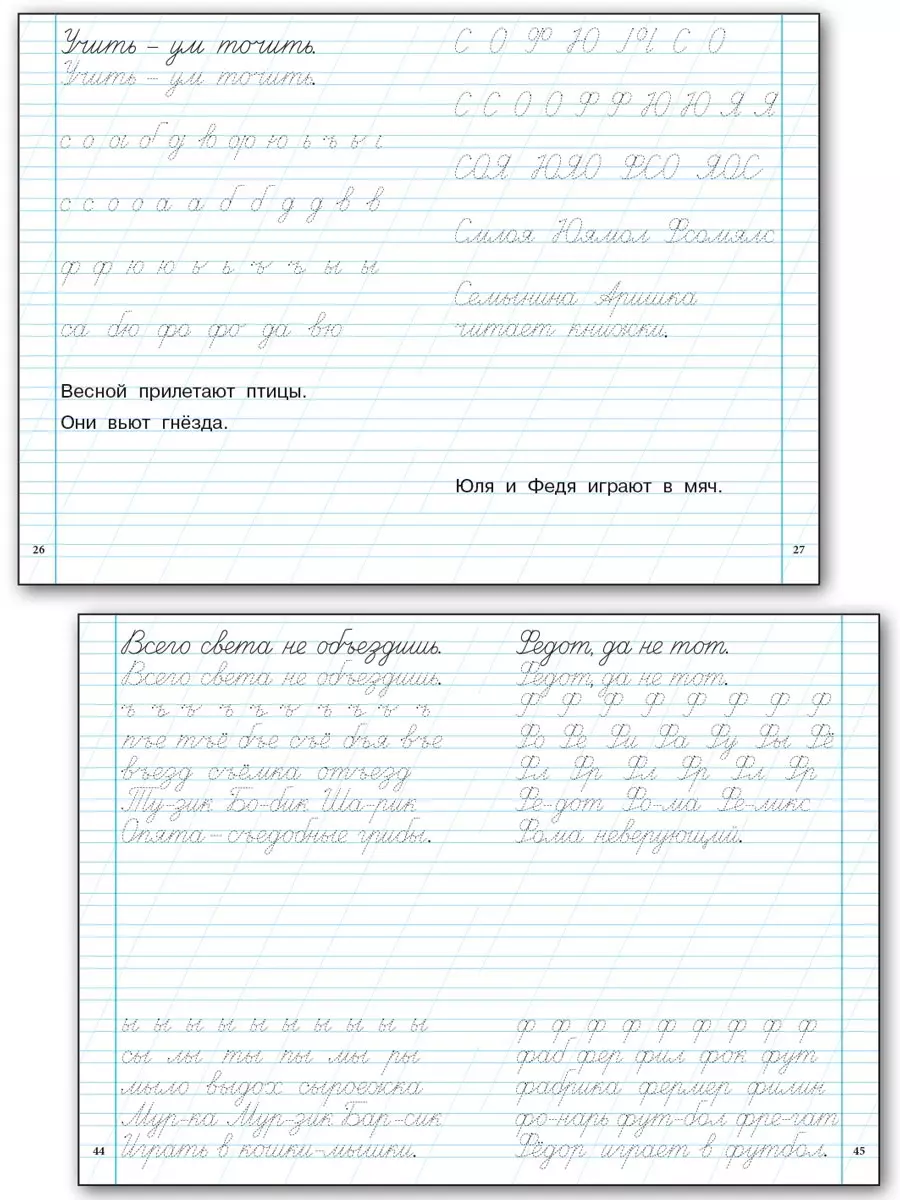 Учить – ум точить.
Учить – ум точить.
с о а б д в ф ю ь ъ ы
с с о о а а б б д д в в
ф ф ю ю ь ь ъ ъ ы ы
са бю фа фо да вю
Весной прилетают птицы.
Они вьют гнёзда.
26
С О Ф Ю Я С О
С С О О Ф Ф Ю Ю Я Я
СОЯ ЮЯО ФСО ЯОС
Смлоя Юямол Фсомялс
Семынина Аришка
читает книжки.
Юля и Федя играют в мяч.
27
Всего света не объездишь.
Всего света не объездишь.
ъ ъ ъ ъ ъ ъ ъ ъ ъ ъ
пъе тъё бъе съё бъя въе
въезд съёмка отъезд
Ту-зик Бо-бик Ша-рик
Опята – съедобные грибы.
ы ы ы ы ы ы ы ы ы ы
сы лы ты пы мы ры
мыло выдох сыроежка
Мур-ка Мур-зик Бар-сик
Играть в кошки-мышки.
44
Федот, да не тот.
Федот, да не тот.
Ф Ф Ф Ф Ф Ф Ф Ф
Фо Фе Фи Фа Фу Фы Фё
Фл Фр Фл Фр Фл Фр
Фе-дот Фо-ма Фе-ликс
Фома неверующий.
ф ф ф ф ф ф ф ф ф
фаб фер фил фок фут
фабрика фермер филин
фо-нарь фут-бол фре-гат
Фёдор играет в футбол.
45